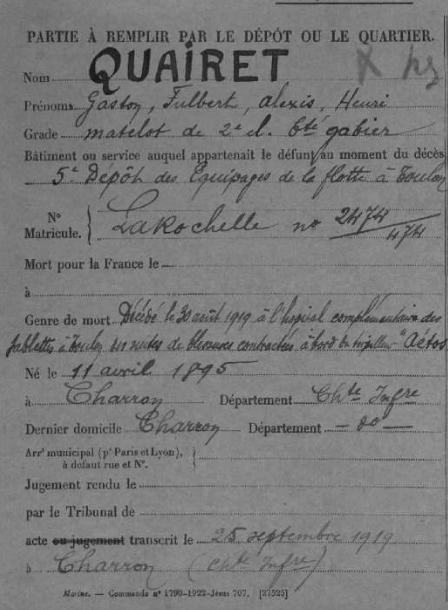 PARTIE À REMPLIR PAR LE DÉPÔT OU LE QUARTIER.
Nom QUAIRET
Prénoms Gaston, Fulbert, Alexis, Henri
Grade matelot de 2e cl. Bté gabier
Bâtiment ou service auquel appartenait le défunt au moment du décès
5e Dépôt des Equipages de la flotte à Toulon
N° Matricule. } LaRochelle no 2474/474
Mort pour la France le
à
Genre de mort Décédé le 30 août 1919 à l'hopital complémentaire des
Sablettes à Toulon des suites de blessures contractées à bord du torpilleur "Aétos
Né le 11 avril 1895
à Charron Département Chte Infre
Dernier domicile Charron Département — do —
Arrt municipal (pr Paris et Lyon), à défaut rue et N°. }
Jugement rendu le
par le Tribunal de
acte ou jugement transcrit le 25 septembre 1919
à Charron (Chte Infre)
Marine. — Commande n° 1790-1922-Jésus 707. [27525]